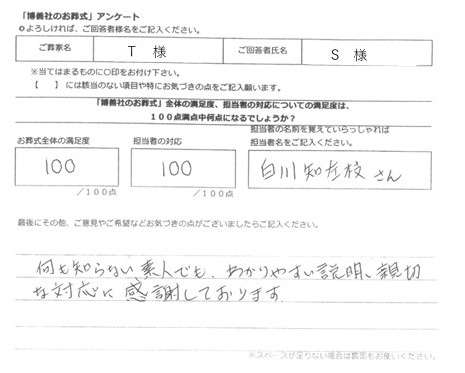 「博善社のお葬式」アンケート
○よろしければ、ご回答者様名をご記入ください。
ご葬家名 T 様 ご回答者氏名 S 様
※当てはまるものに○印をお付け下さい。
【 】には該当のない項目や特にお気づきの点をご記入願います。
「博善社のお葬式」全体の満足度、担当者の対応についての満足度は、
100点満点中何点になるでしょうか?
お葬式全体の満足度 担当者の対応 担当者の名前を覚えていらっしゃれば
担当者名をご記入ください。
100 100 白川知左校さん
/100点 /100点
最後にその他、ご意見やご希望などお気づきの点がございましたらご記入ください。
何も知らない素人でも、わかりやすい説明、親切
な対応に感謝しております
※スペースが足りない場合は裏面もお使いください。